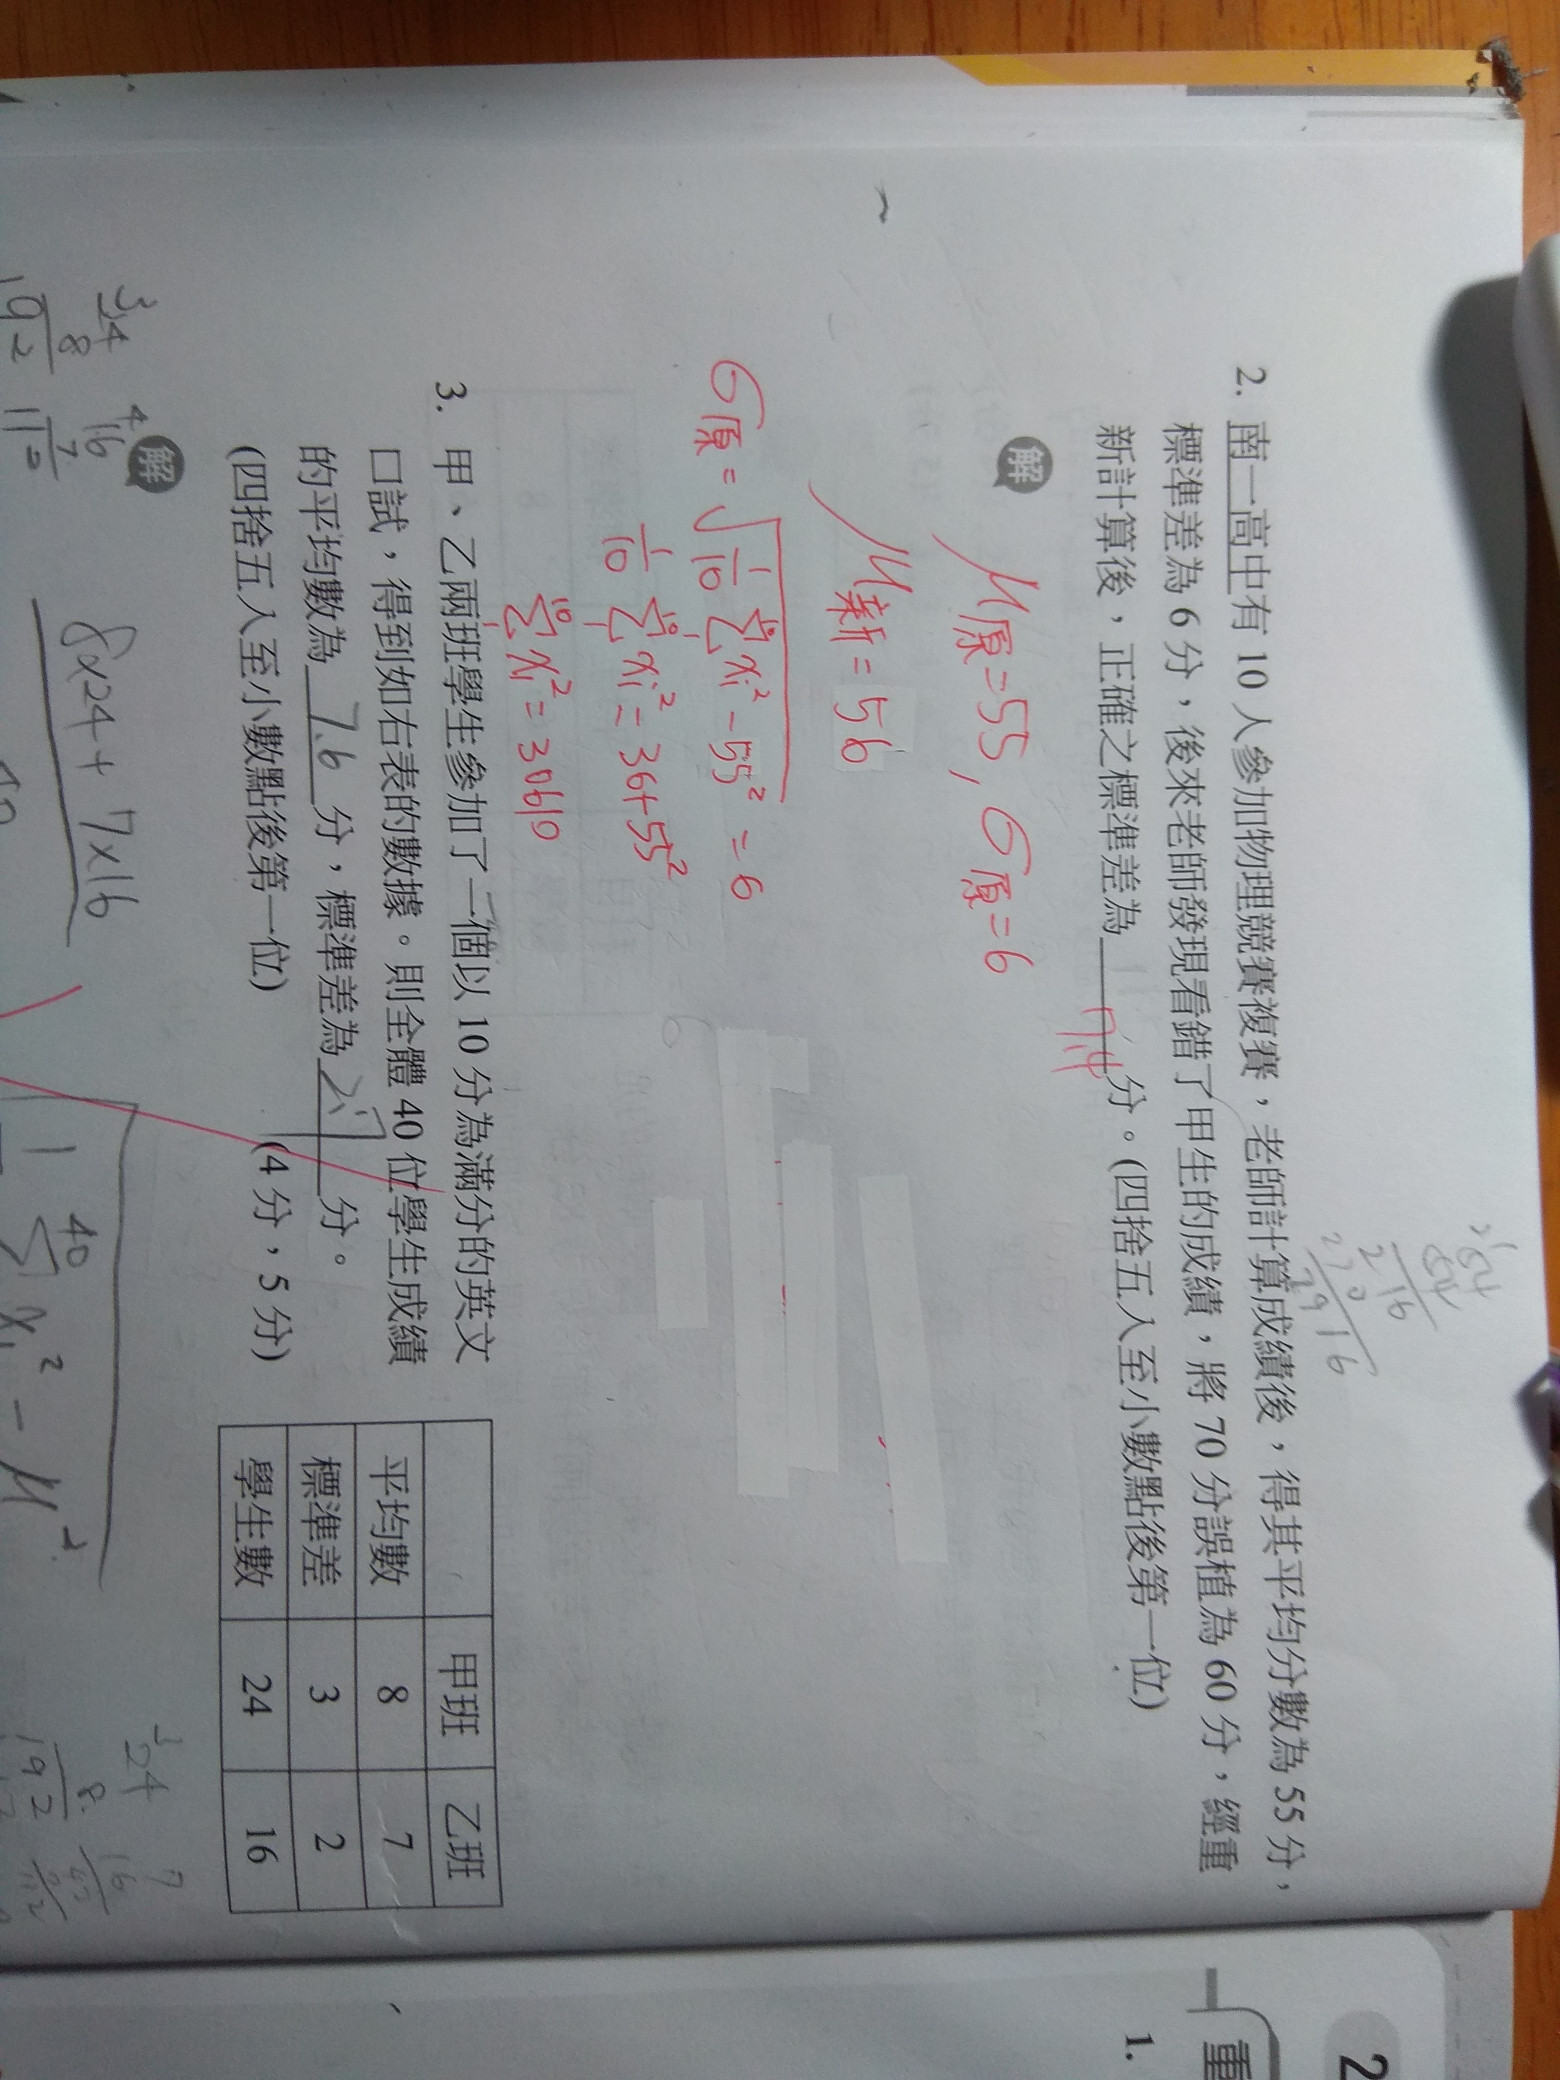 2. 南一高中有 10 人參加物理競賽複賽，老師計算成績後，得其平均分數為 55 分，
標準差為 6 分，後來老師發現看錯了甲生的成績，將 70 分誤植為 60 分，經重
新計算後，正確之標準差為 7.4 分。(四捨五入至小數點後第一位)
解
μ原=55, σ原=6
μ新=56
σ原=√(1/10 Σxi²-55²)=6
1/10 Σxi²=36+55²
Σxi²=30610
3. 甲、乙兩班學生參加了一個以 10 分為滿分的英文
口試，得到如右表的數據。則全體 40 位學生成績
的平均數為 7.6 分，標準差為 分。
(四捨五入至小數點後第一位) (4 分，5 分)
甲班 乙班
平均數 8 7
標準差 3 2
學生數 24 16
解
8x24+7x16
2
重
1.